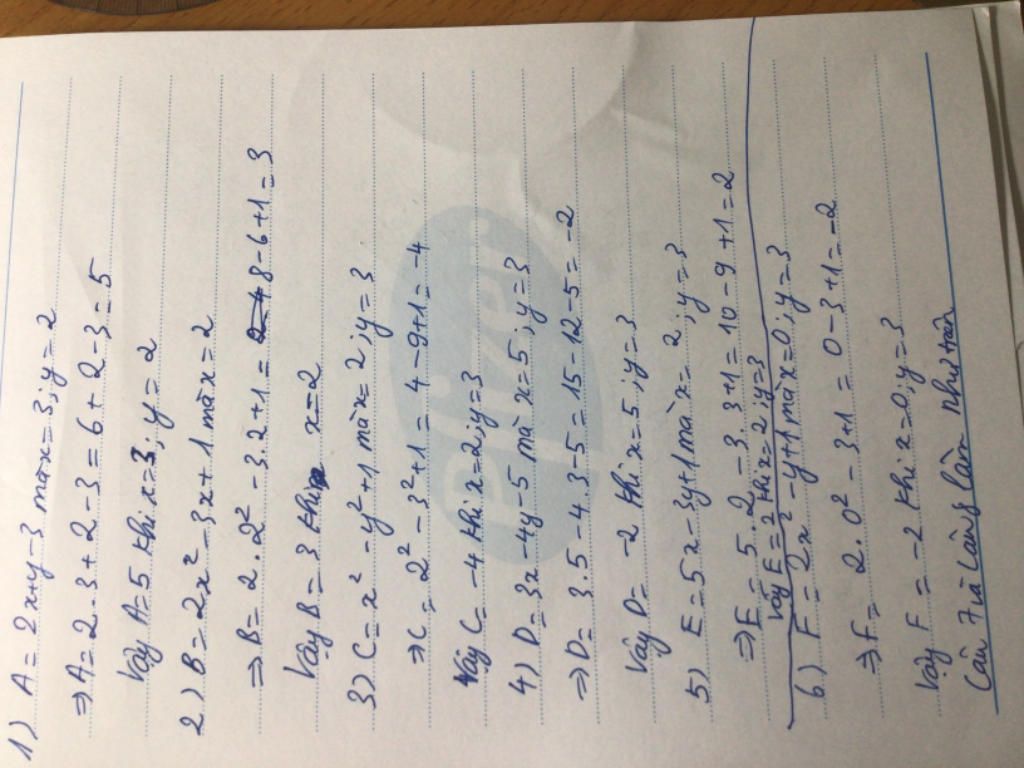 1) A = 2x+y-3 mà x=3; y=2
⇒ A = 2.3 + 2 - 3 = 6 + 2 - 3 = 5
Vậy A = 5 khi x=3; y=2
2) B = 2x² - 3x + 1 mà x = 2
⇒ B = 2 . 2² - 3.2 + 1 = 8 - 6 + 1 = 3
Vậy B = 3 khi x=2
3) C = x² - y² + 1 mà x = 2; y = 3
⇒ C = 2² - 3² + 1 = 4 - 9 + 1 = -4
Vậy C = -4 khi x=2; y=3
4) D = 3x - 4y - 5 mà x = 5; y = 3
⇒ D = 3.5 - 4.3 - 5 = 15 - 12 - 5 = -2
Vậy D = -2 khi x = 5; y = 3
5) E = 5x - 3y + 1 mà x = 2; y = 3
⇒ E = 5.2 - 3.3 + 1 = 10 - 9 + 1 = 2
Vậy E = 2 khi x = 2; y = 3
6) F = 2x² - y + 1 mà x = 0; y = 3
⇒ F = 2.0² - 3 + 1 = 0 - 3 + 1 = -2
Vậy F = -2 khi x = 0; y = 3
Câu 7 và làm như trên
Pfizer